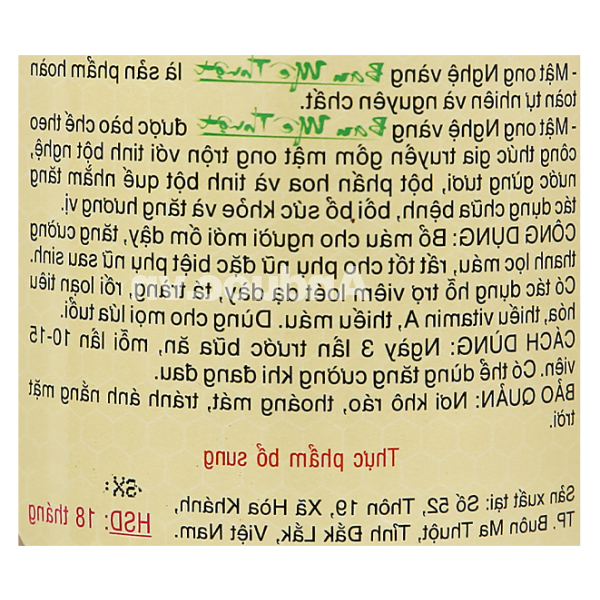 - Mật ong Nghệ vàng Ban Mê Thuột là sản phẩm hoàn
toàn tự nhiên và nguyên chất.
- Mật ong Nghệ vàng Ban Mê Thuột được bào chế theo
công thức gia truyền gồm mật ong trộn với tinh bột nghệ,
nước gừng tươi, bột phấn hoa và tinh bột quế nhằm tăng
tác dụng chữa bệnh, bồi bổ sức khỏe và tăng hương vị.
CÔNG DỤNG: Bổ máu cho người mới ốm dậy, tăng cường
thanh lọc máu, rất tốt cho phụ nữ đặc biệt phụ nữ sau sinh.
Có tác dụng hỗ trợ viêm loét dạ dày, tá tràng, rối loạn tiêu
hóa, thiếu vitamin A, thiếu máu. Dùng mọi cho lứa tuổi.
CÁCH DÙNG: Ngày 3 lần trước bữa ăn, mỗi lần 10-15
viên. Có thể dùng tăng cường khi đang đau.
BẢO QUẢN: Nơi khô ráo, thoáng mát, tránh ánh nắng mặt
trời.
Thực phẩm bổ sung
Sản xuất tại: Số 52, Thôn 19, Xã Hòa Khánh,
TP. Buôn Ma Thuột, Tỉnh Đắk Lắk, Việt Nam.
SX:
HSD: 18 tháng